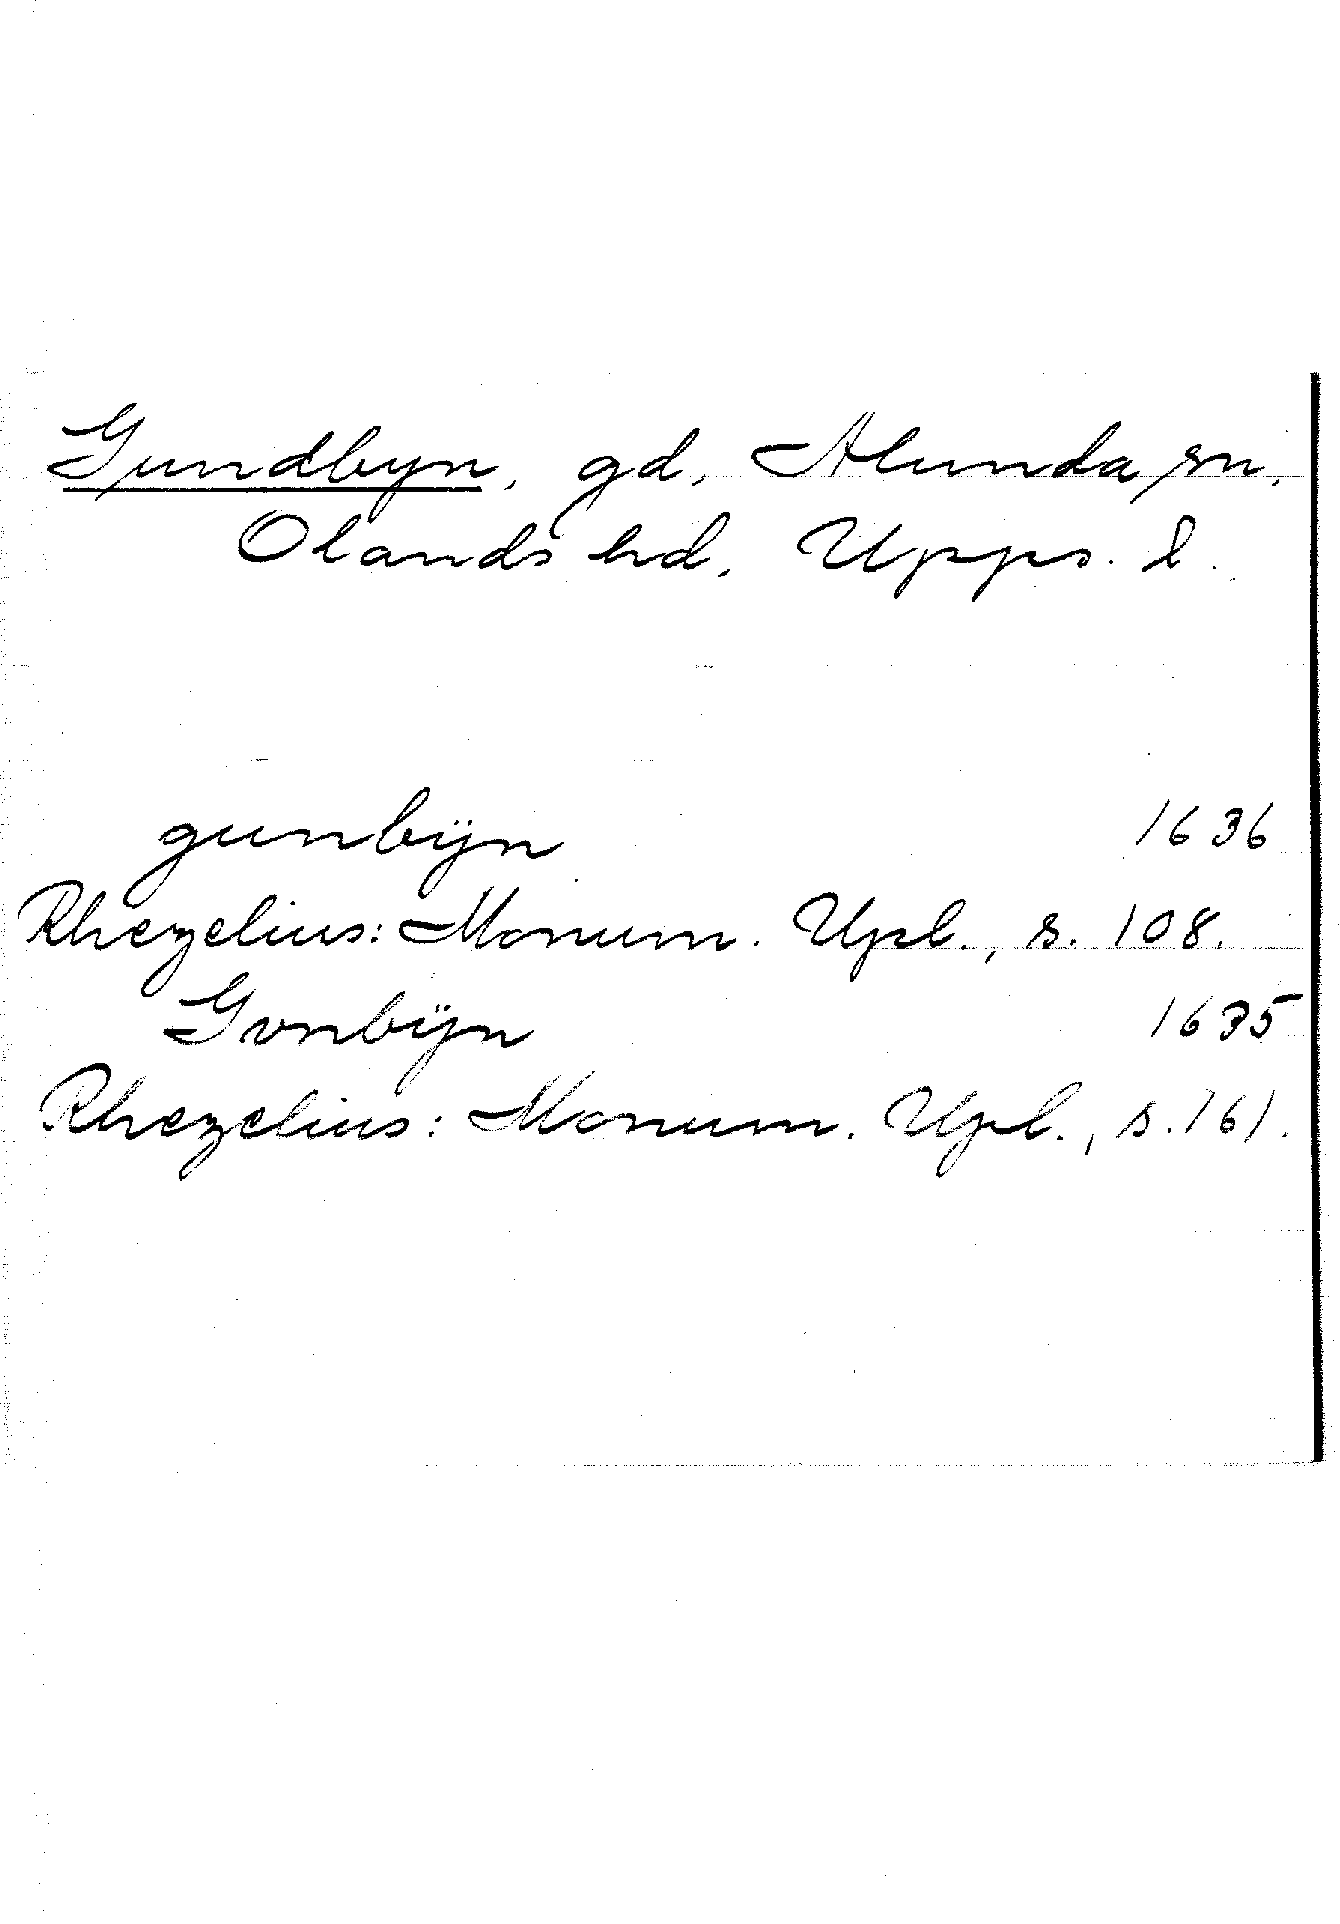 Gundbyn, gd, Alunda sn,
Olands hd, Upps. l.
gunbÿn 1636
Rhezelius: Monum. Upl., s. 108.
Gvnbÿn 1635
Rhezelius: Monum. Upl., s. 161.